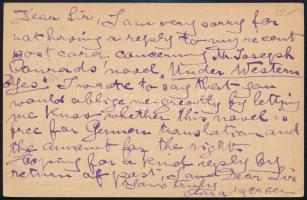 Dear Sir, I am very sorry for
not having a reply to my recent
post card concerning Mr. Joseph
Conrads novel "Under Western
Eyes". I wrote to say that you
would oblige me greatly by letting
me know whether this novel is
free for German translation and
the amount for the right.
Hoping for a kind reply by
return of post, I am Dear Sir
Yours truly
Clara